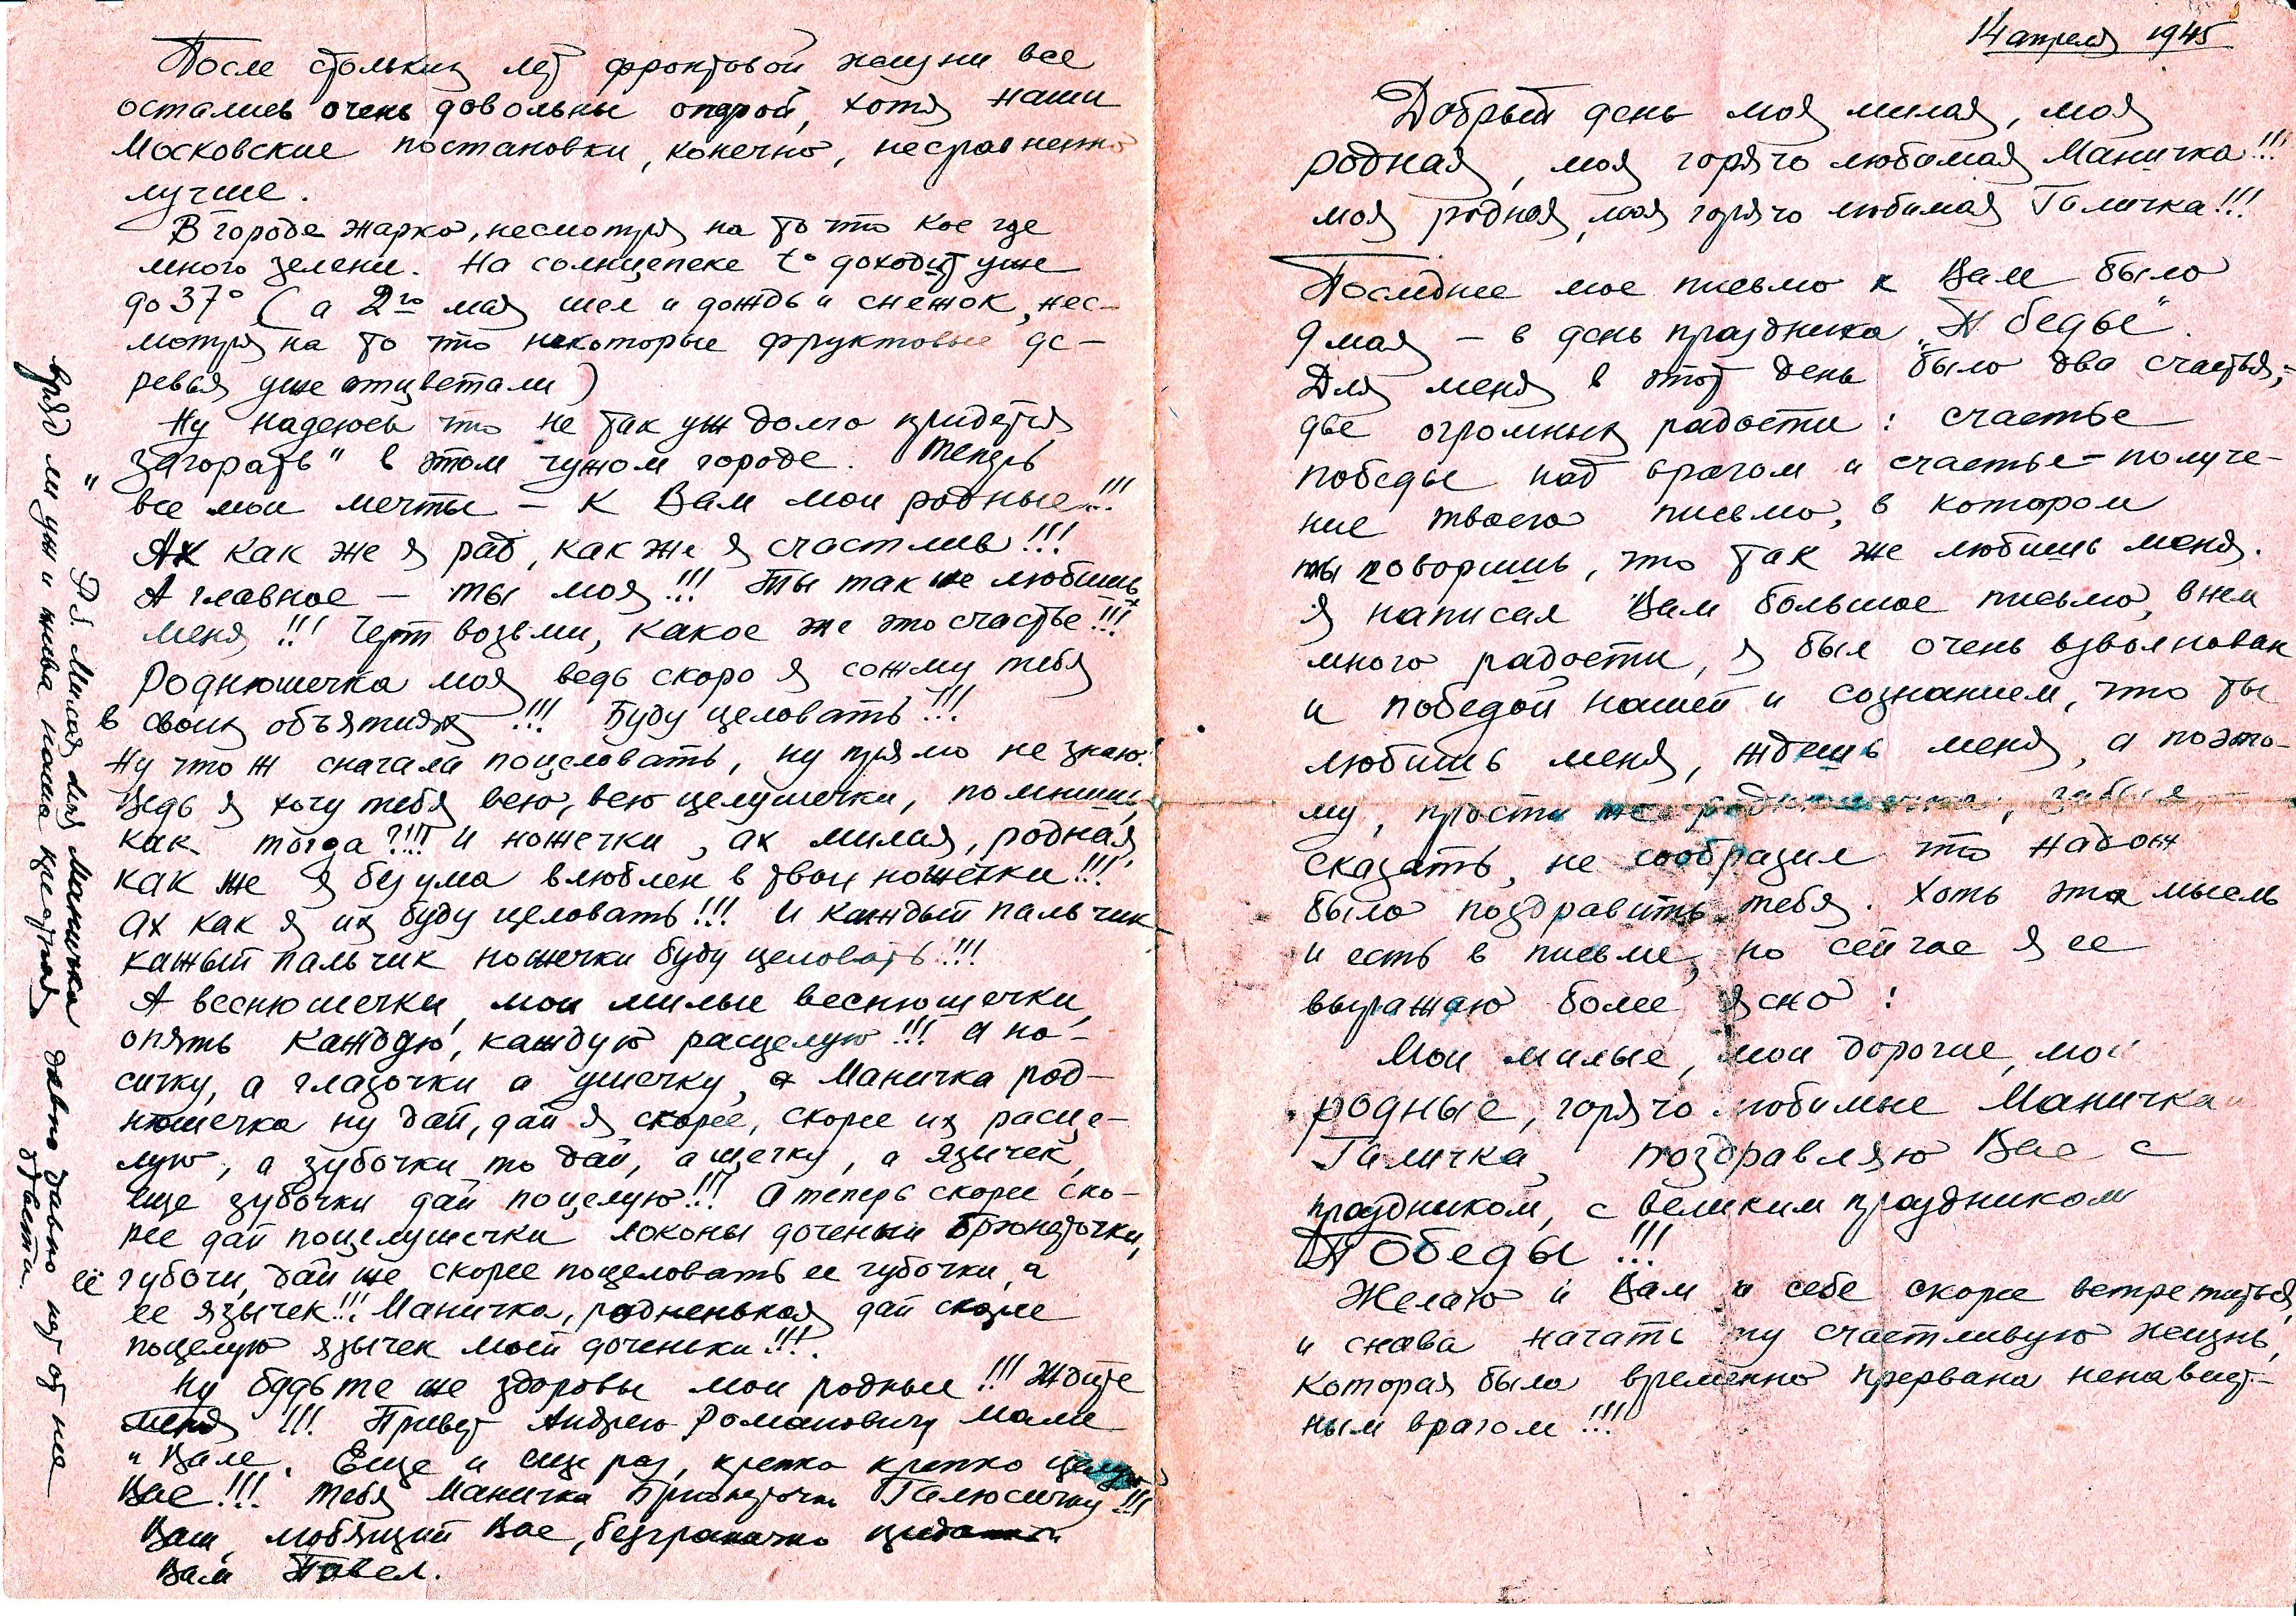 14 апреля 1945
Добрый день моя милая, моя
родная, моя горячо любимая Маничка!!!
моя родная, моя горячо любимая Галичка!!!
Последнее мое письмо к Вам было
9 мая – в день праздника „Победы".
Для меня в этот день было два счастья,–
две огромных радости: счастье
победы над врагом и счастье – получе-
ние твоего письма, в котором
ты говоришь, что так же любишь меня.
Я написал Вам большое письмо, в нем
много радости, я был очень взволнован
и победой нашей и сознанием, что ты
любишь меня, ждешь меня, а поэто-
му, прости
сказать, не сообразил что надо ж
было поздравить тебя. Хоть эта мысль
и есть в письме, но сейчас я ее
выражаю более ясно:
Мои милые, мои дорогие, мои
родные, горячо любимые Маничка и
Галичка, поздравляю Вас с
праздником, с великим праздником
Победы!!!
Желаю и Вам и себе скорее встретиться,
и снова начать ту счастливую жизнь,
которая была временно прервана ненавист-
ным врагом!!!
После стольких лет фронтовой жизни все
остались очень довольны оперой, хотя наши
Московские постановки, конечно, несравненно
лучше.
В городе жарко, несмотря на то что кое где
много зелени. На солнцепеке t° доходит уже
до 37° (а 2го мая шел и дождь и снежок, нес-
мотря на то что некоторые фруктовые де-
ревья уже отцветали)
Ну надеюсь что не так уж долго придется
„загорать" в этом чужом городе. Теперь
все мои мечты – к Вам мои родные!!!
Ах как же я рад, как же я счастлив!!!
А главное – ты моя!!! Ты так же любишь
меня!!! Черт возьми, какое же это счастье!!!
Роднюшечка моя ведь скоро я сожму тебя
в своих объятиях!!! Буду целовать!!!
Ну что ж сначала поцеловать, ну прямо не знаю!
Ведь я хочу тебя всю, всю целушечки, помнишь,
как тогда?!!! И ножечки, ах милая, родная,
как же я без ума влюблен в твои ножечки!!!
Ах как я их буду целовать!!! И каждый пальчик,
кажый пальчик ножечки буду целовать!!!
А веснюшечки, мои милые веснюшечки,
опять каждую, каждую расцелую!!! а но-
сичку, а глазочки а ушечку, а Маничка род-
нюшечка ну дай, дай я скорее, скорее их расце-
лую, а зубочки то дай, а щечку, а язычек,
еще зубочки дай поцелую!!! А теперь скорее ско-
рее дай поцелушечки локоны доченьки Брюнеточки,
её губочи, дай же скорее поцеловать ее губочки, а
ее язычек!!! Маничка, родненькая дай скорее
поцелую язычек моей доченьки!!!
Ну будьте же здоровы мои родные!!! Ждите
меня!!! Привет Андрею Романовичу маме
и Вале. Еще и еще раз, крепко крепко целую
Вас!!! тебя Маничка Брюнеточку Галюсичку!!!
Ваш, любящий Вас, безгранично
Вам Павел.
P.S. Милая моя Маничка давно давно нет от нее
ответа.
вряд ли уж и жива наша